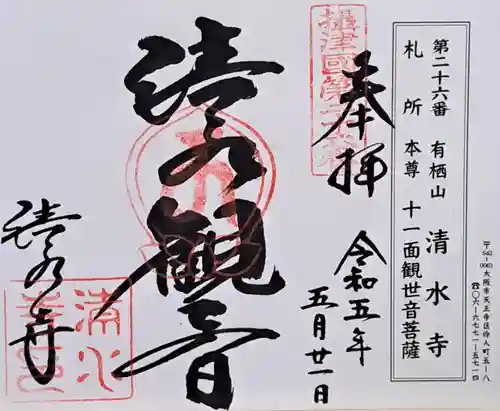 〒543-0063 大阪市天王寺区伶人町五-八 ☎〇六-六七七一-五七一四
第二十六番 有栖山 清水寺
札所本尊 十一面観世音菩薩
奉拝
令和五年
五月廿一日
摂津國第二十六番
清水観音
清水寺